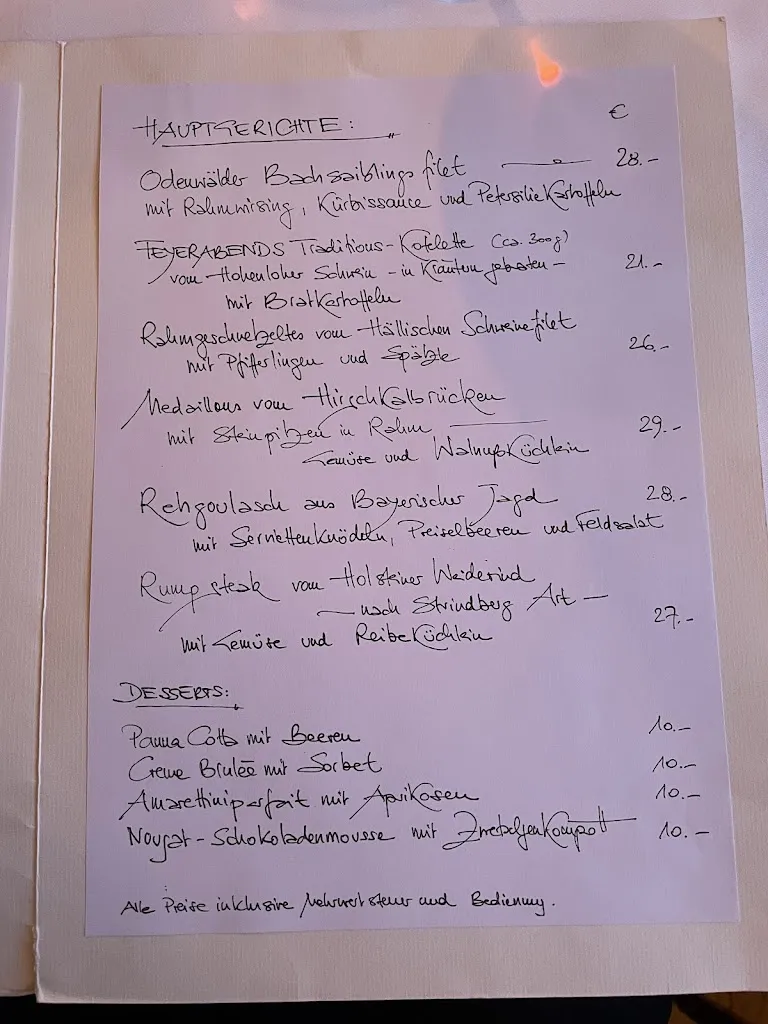 HAUPTGERICHTE: €
Odenwälder Bachsaiblingsfilet 28.-
mit Rahmwirsing, Kürbissauce und Petersilienkartoffeln
FEYERABENDS Traditions-Kotelette (ca. 300g)
vom Hohenloher Schwein - in Kräutern gebraten - 21.-
mit Bratkartoffeln
Rahmgeschnetzeltes vom Hällischen Schweinefilet
mit Pfifferlingen und Spätzle 26.-
Medaillons vom Hirschkalbrücken
mit Steinpilzen in Rahm 29.-
Gemüse und Walnußküchlein
Rehgoulasch aus Bayerischer Jagd 28.-
mit Serviettenknödeln, Preiselbeeren und Feldsalat
Rumpsteak vom Holsteiner Weiderind
- nach Strindberg Art -
mit Gemüse und Reibeküchlein 27.-
DESSERTS:
Panna Cotta mit Beeren 10.-
Creme Brulée mit Sorbet 10.-
Amarettiniparfait mit Aprikosen 10.-
Nougat-Schokoladenmousse mit Zwetschgenkompott 10.-
Alle Preise inklusive Mehrwertsteuer und Bedienung.